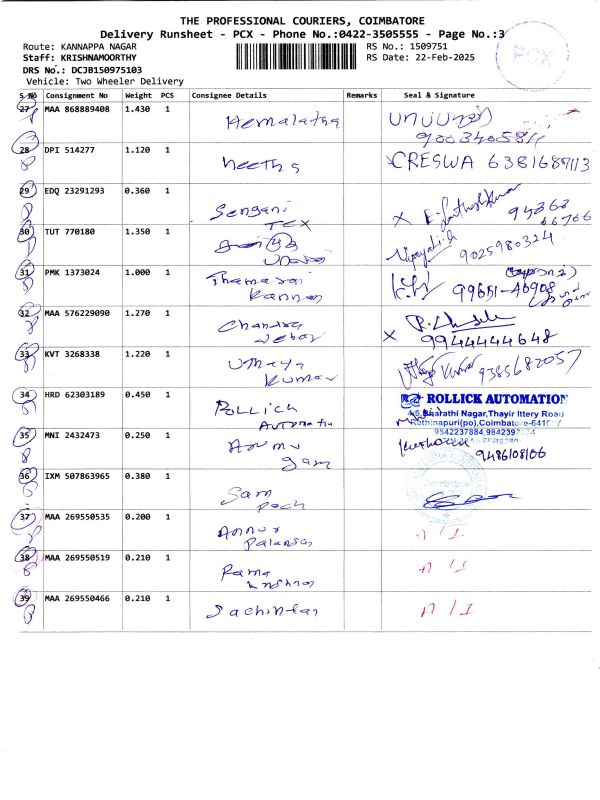 THE PROFESSIONAL COURIERS, COIMBATORE
Delivery Runsheet - PCX - Phone No.:0422-3505555 - Page No.:3
Route: KANNAPPA NAGAR
RS No.: 1509751
Staff: KRISHNAMOORTHY
RS Date: 22-Feb-2025
DRS No.: DCJB150975103
Vehicle: Two Wheeler Delivery
PCX
S No Consignment No Weight PCS Consignee Details Remarks Seal & Signature
27 MAA 868889408 1.430 1 Hemalatha
28 DPI 514277 1.120 1 CRESWA 6381689113
29 EDQ 23291293 0.360 1 Sengani
TEX
30 TUT 770180 1.350 1 9025980324
31 PMK 1373024 1.000 1 Thamarai
Kannan 99651-40908
32 MAA 576229090 1.270 1 Chandra
Sekar 9944444648
33 KVT 3268338 1.220 1 Uthaya
Kumar 9385682057
34 HRD 62303189 0.450 1 ROLLICK AUTOMATION
Bharathi Nagar,Thayir Ittery Road
Rathinapuri(po),Coimbatore-6410
9542237884,9842397
35 MNI 2432473 0.250 1 9486108106
36 IXM 507863965 0.380 1 Sam
Pech
37 MAA 269550535 0.200 1 Annur
38 MAA 269550519 0.210 1 Rama
39 MAA 269550466 0.210 1